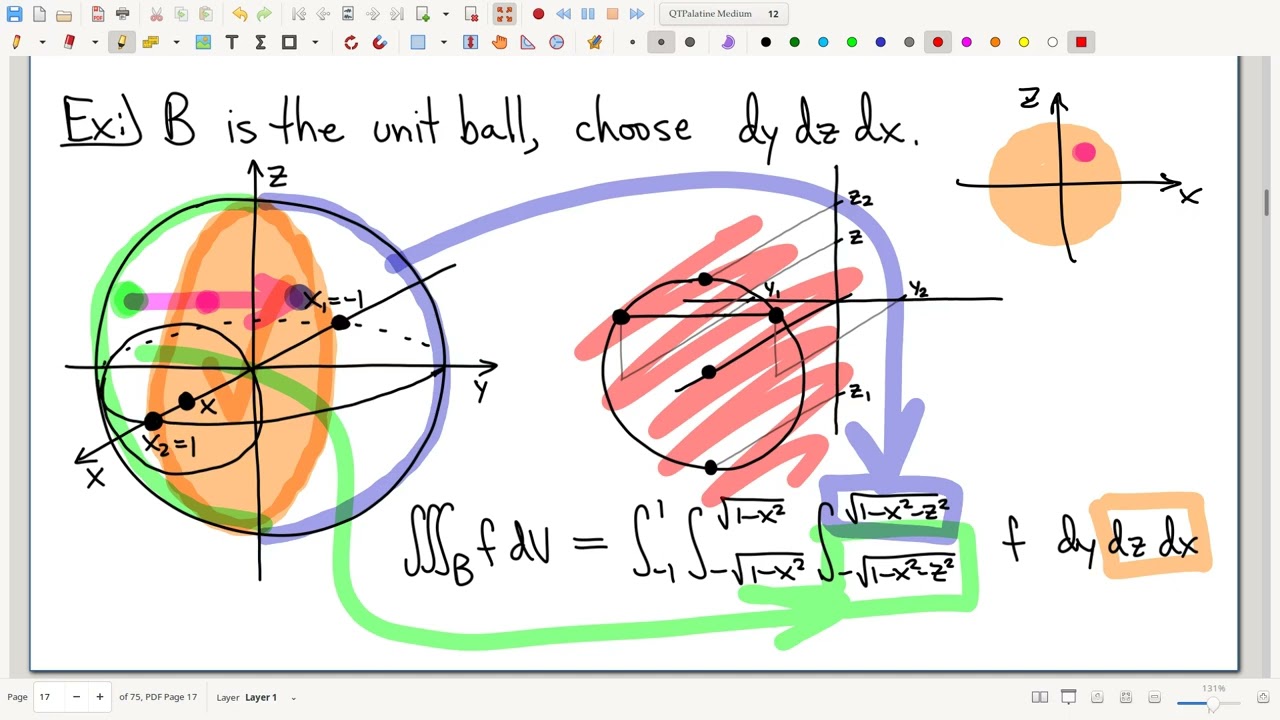 QTPalatine Medium 12
Ex:) B is the unit ball, choose dy dz dx.
z
x
z
y
x
x₁=-1
x
x₂=1
z₂
z
y₁
y₂
z₁
∭_B f dV = ∫_{-1}^{1} ∫_{-√(1-x²)}^{√(1-x²)} ∫_{-√(1-x²-z²)}^{√(1-x²-z²)} f dy dz dx
Page 17 of 75, PDF Page 17 Layer Layer 1
131%